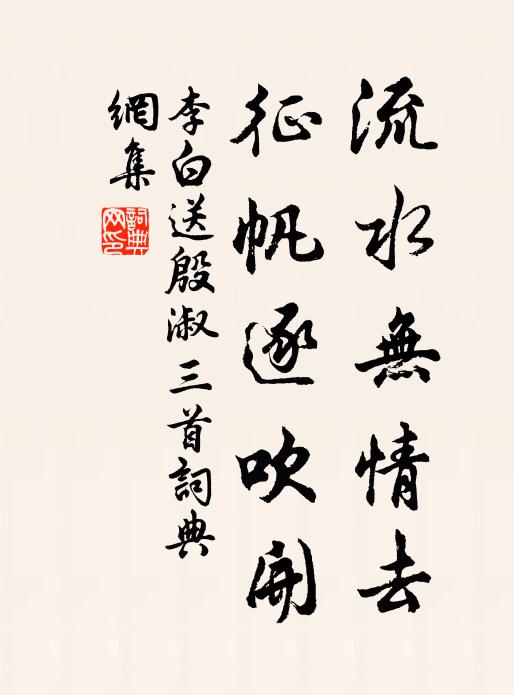 流水無情去
征帆逐吹開
李白送殷淑三首詞典
網集
詞典網印